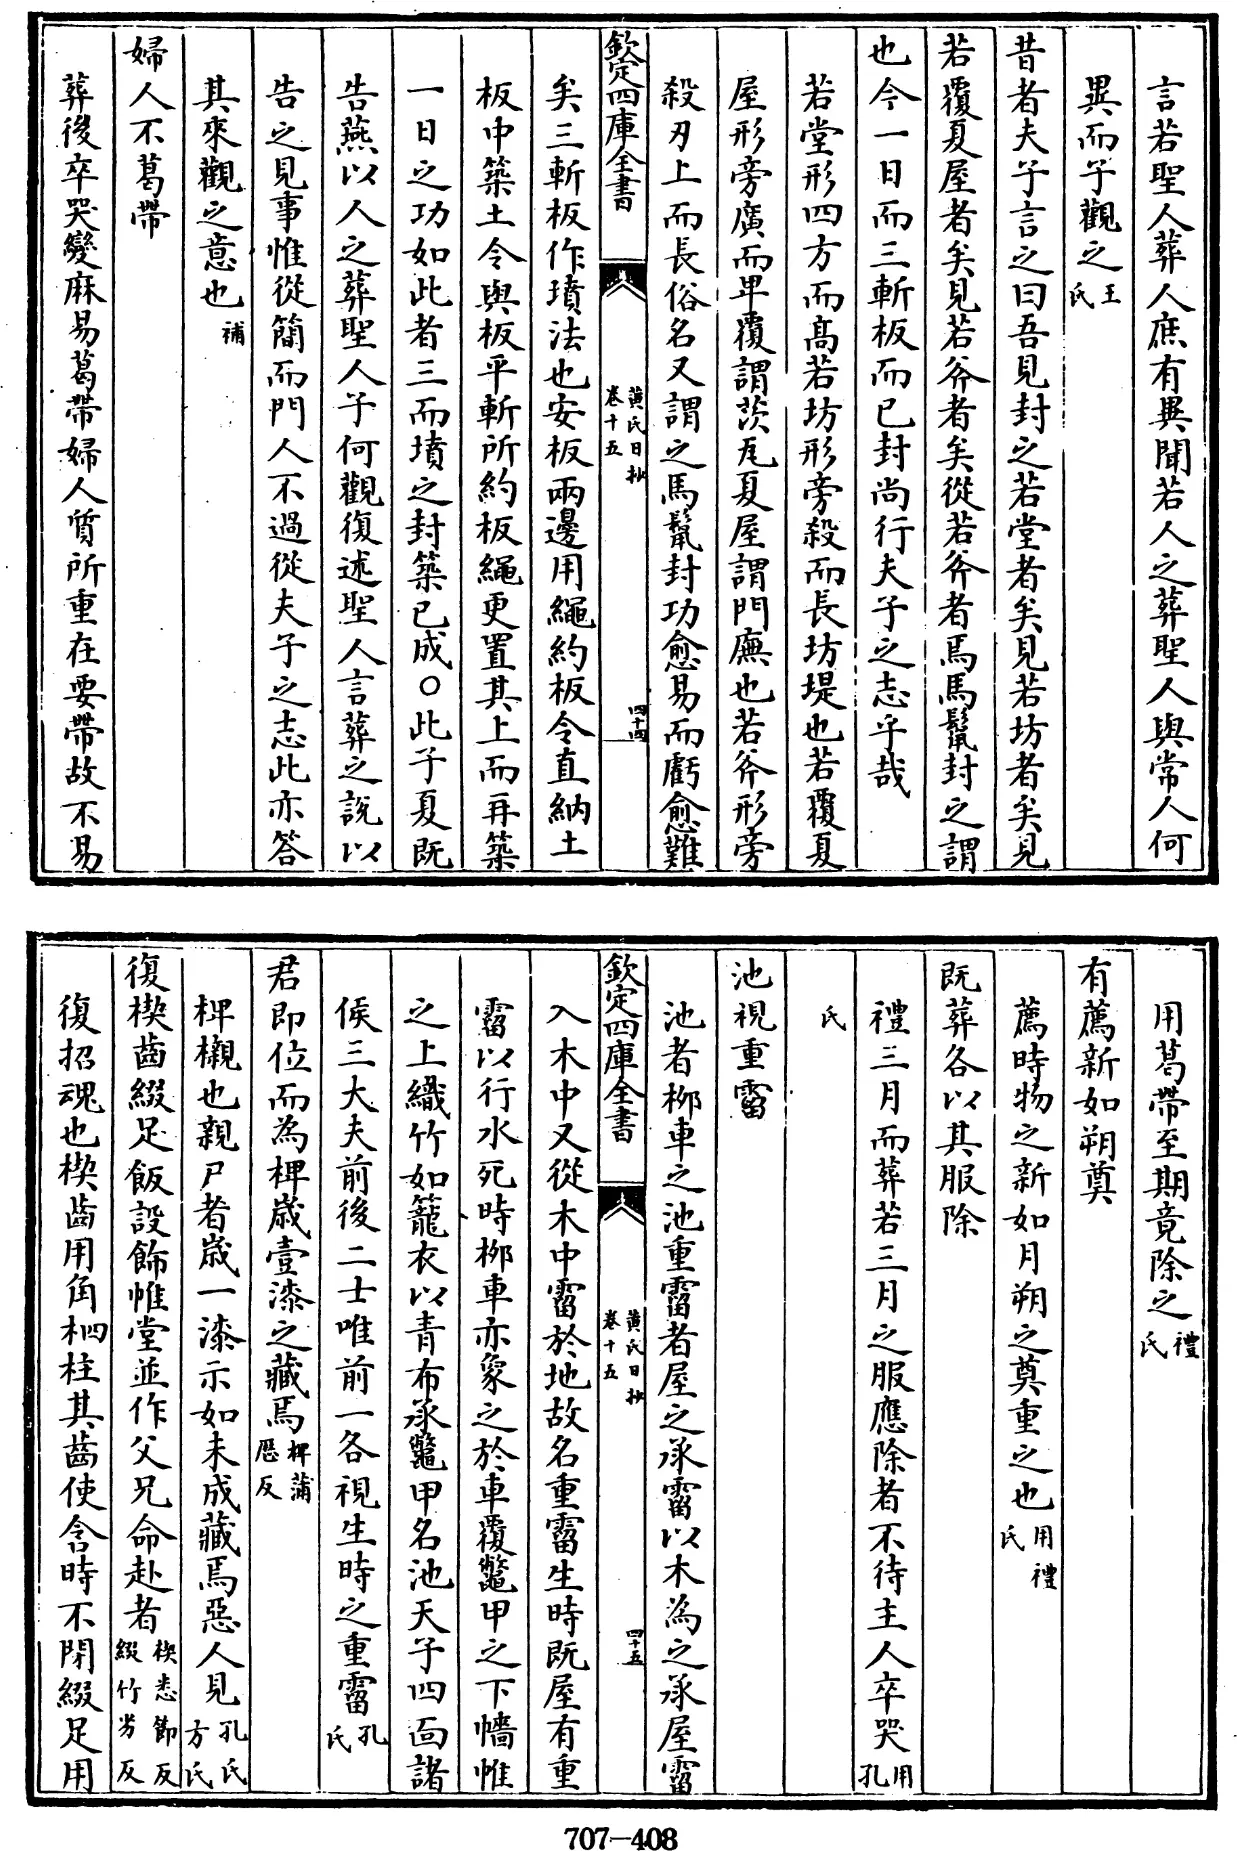 言若聖人葬人庶有異聞若人之葬聖人與常人何
異而子觀之王氏
昔者夫子言之曰吾見封之若堂者矣見若坊者矣見
若覆夏屋者矣見若斧者矣從若斧者焉馬鬛封之謂
也今一日而三斬板而已封尚行夫子之志乎哉
若堂形四方而髙若坊形旁殺而長坊堤也若覆夏
屋形旁廣而卑覆謂茨瓦夏屋謂門廡也若斧形旁
殺刃上而長俗名又謂之馬鬛封功愈易而虧愈難
欽定四庫全書
黄氏日抄
卷十五
四十四
矣三斬板作墳法也安板兩邊用繩約板令直納土
板中築土令與板平斬所約板繩更置其上而再築
一日之功如此者三而墳之封築已成○此子夏既
告燕以人之葬聖人子何觀復述聖人言葬之說以
告之見事惟從簡而門人不過從夫子之志此亦答
其來觀之意也補
婦人不葛帶
葬後卒哭變麻易葛帶婦人質所重在要帶故不易
用葛帶至期竟除之禮氏
有薦新如朔奠
薦時物之新如月朔之奠重之也用禮氏
既葬各以其服除
禮三月而葬若三月之服應除者不待主人卒哭用孔
氏
池視重霤
池者桞車之池重霤者屋之承霤以木為之承屋霤
欽定四庫全書
黄氏日抄
卷十五
四十五
入木中又從木中霤於地故名重霤生時既屋有重
霤以行水死時桞車亦象之於車覆鼈甲之下牆帷
之上織竹如籠衣以青布承鼈甲名池天子四靣諸
侯三大夫前後二士唯前一各視生時之重霤孔氏
君即位而為椑歳壹漆之藏焉椑蒲厯反
椑櫬也親尸者歳一漆示如未成藏焉惡人見孔氏方氏
復楔齒綴足飯設飾帷堂並作父兄命赴者楔悉節反綴竹劣反
復招魂也楔齒用角柶柱其齒使含時不閉綴足用
707—408